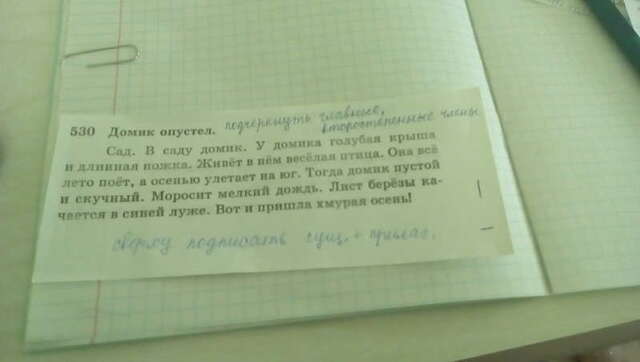 530 Домик опустел. подчеркнуть главные,
второстепенные члены
Сад. В саду домик. У домика голубая крыша
и длинная ножка. Живёт в нём весёлая птица. Она всё
лето поёт, а осенью улетает на юг. Тогда домик пустой
и скучный. Моросит мелкий дождь. Лист берёзы ка-
чается в синей луже. Вот и пришла хмурая осень!
сверху подписать сущ. + прилаг.